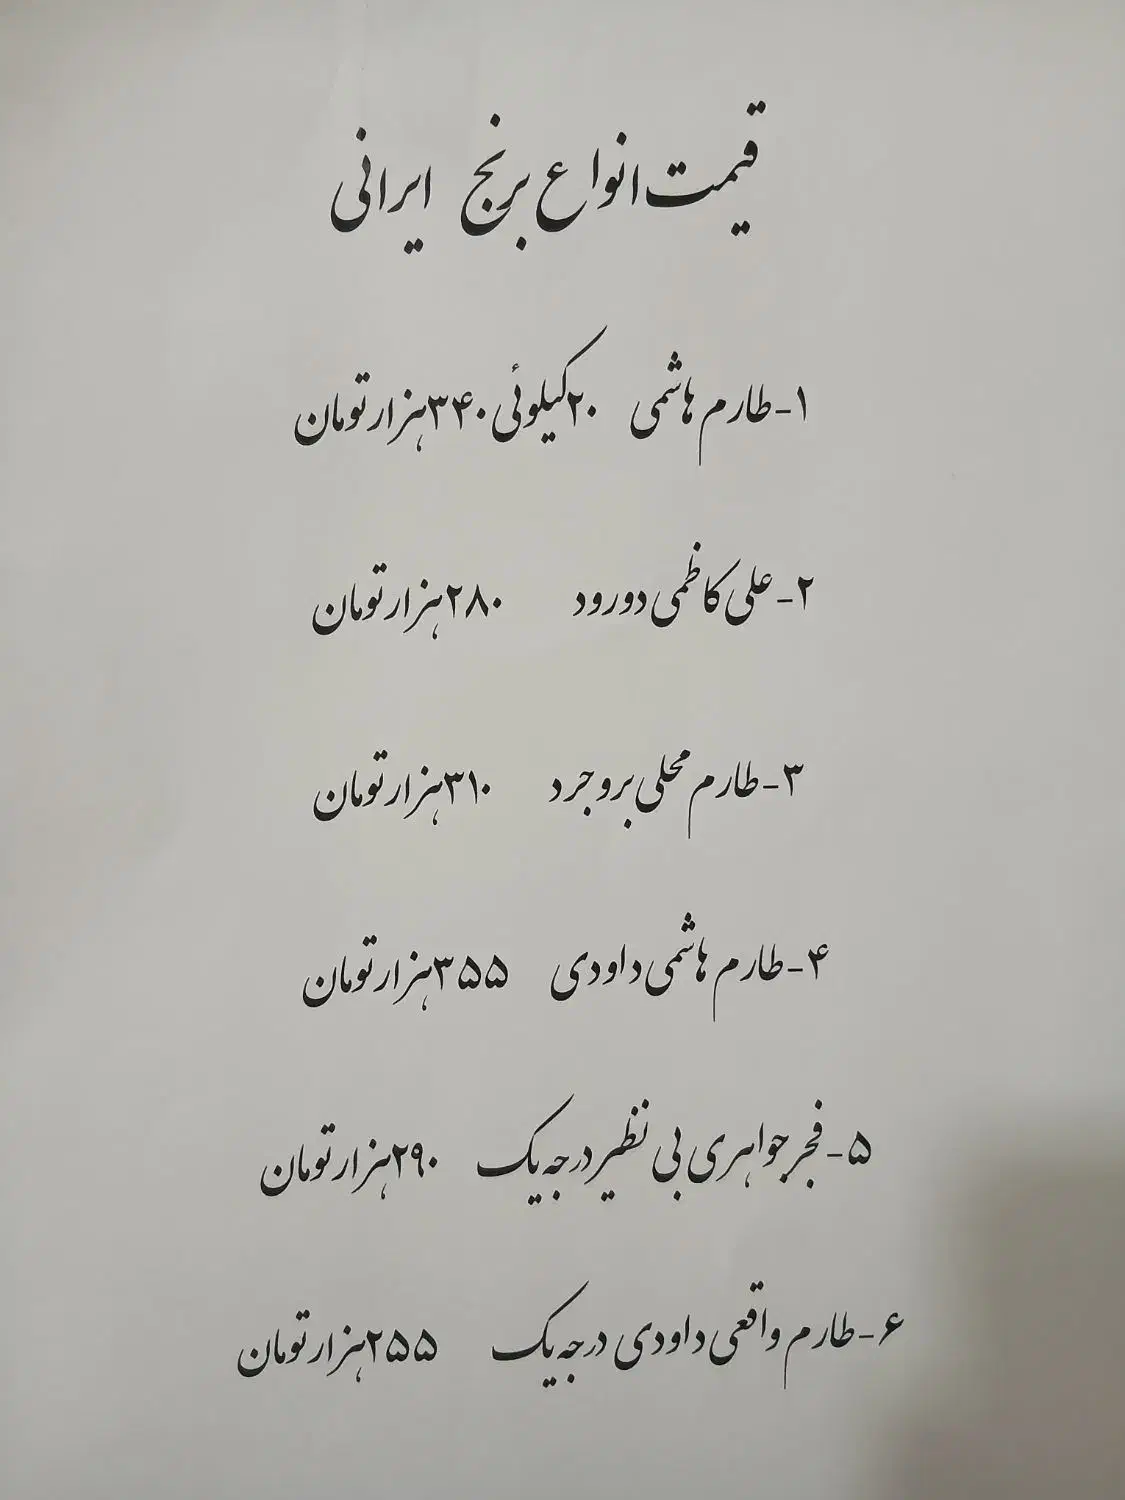 قیمت انواع برنج ایرانی
۱-طارم هاشمی ۲۰کیلوئی ۳۴۰هزارتومان
۲-علی کاظمی دورود ۲۸۰هزارتومان
۳-طارم محلی بروجرد ۳۱۰هزارتومان
۴-طارم هاشمی داودی ۳۵۵هزارتومان
۵-فجر جواهری بی نظیر درجه یک ۲۹۰هزارتومان
۶-طارم واقعی داودی درجه یک ۲۵۵هزارتومان